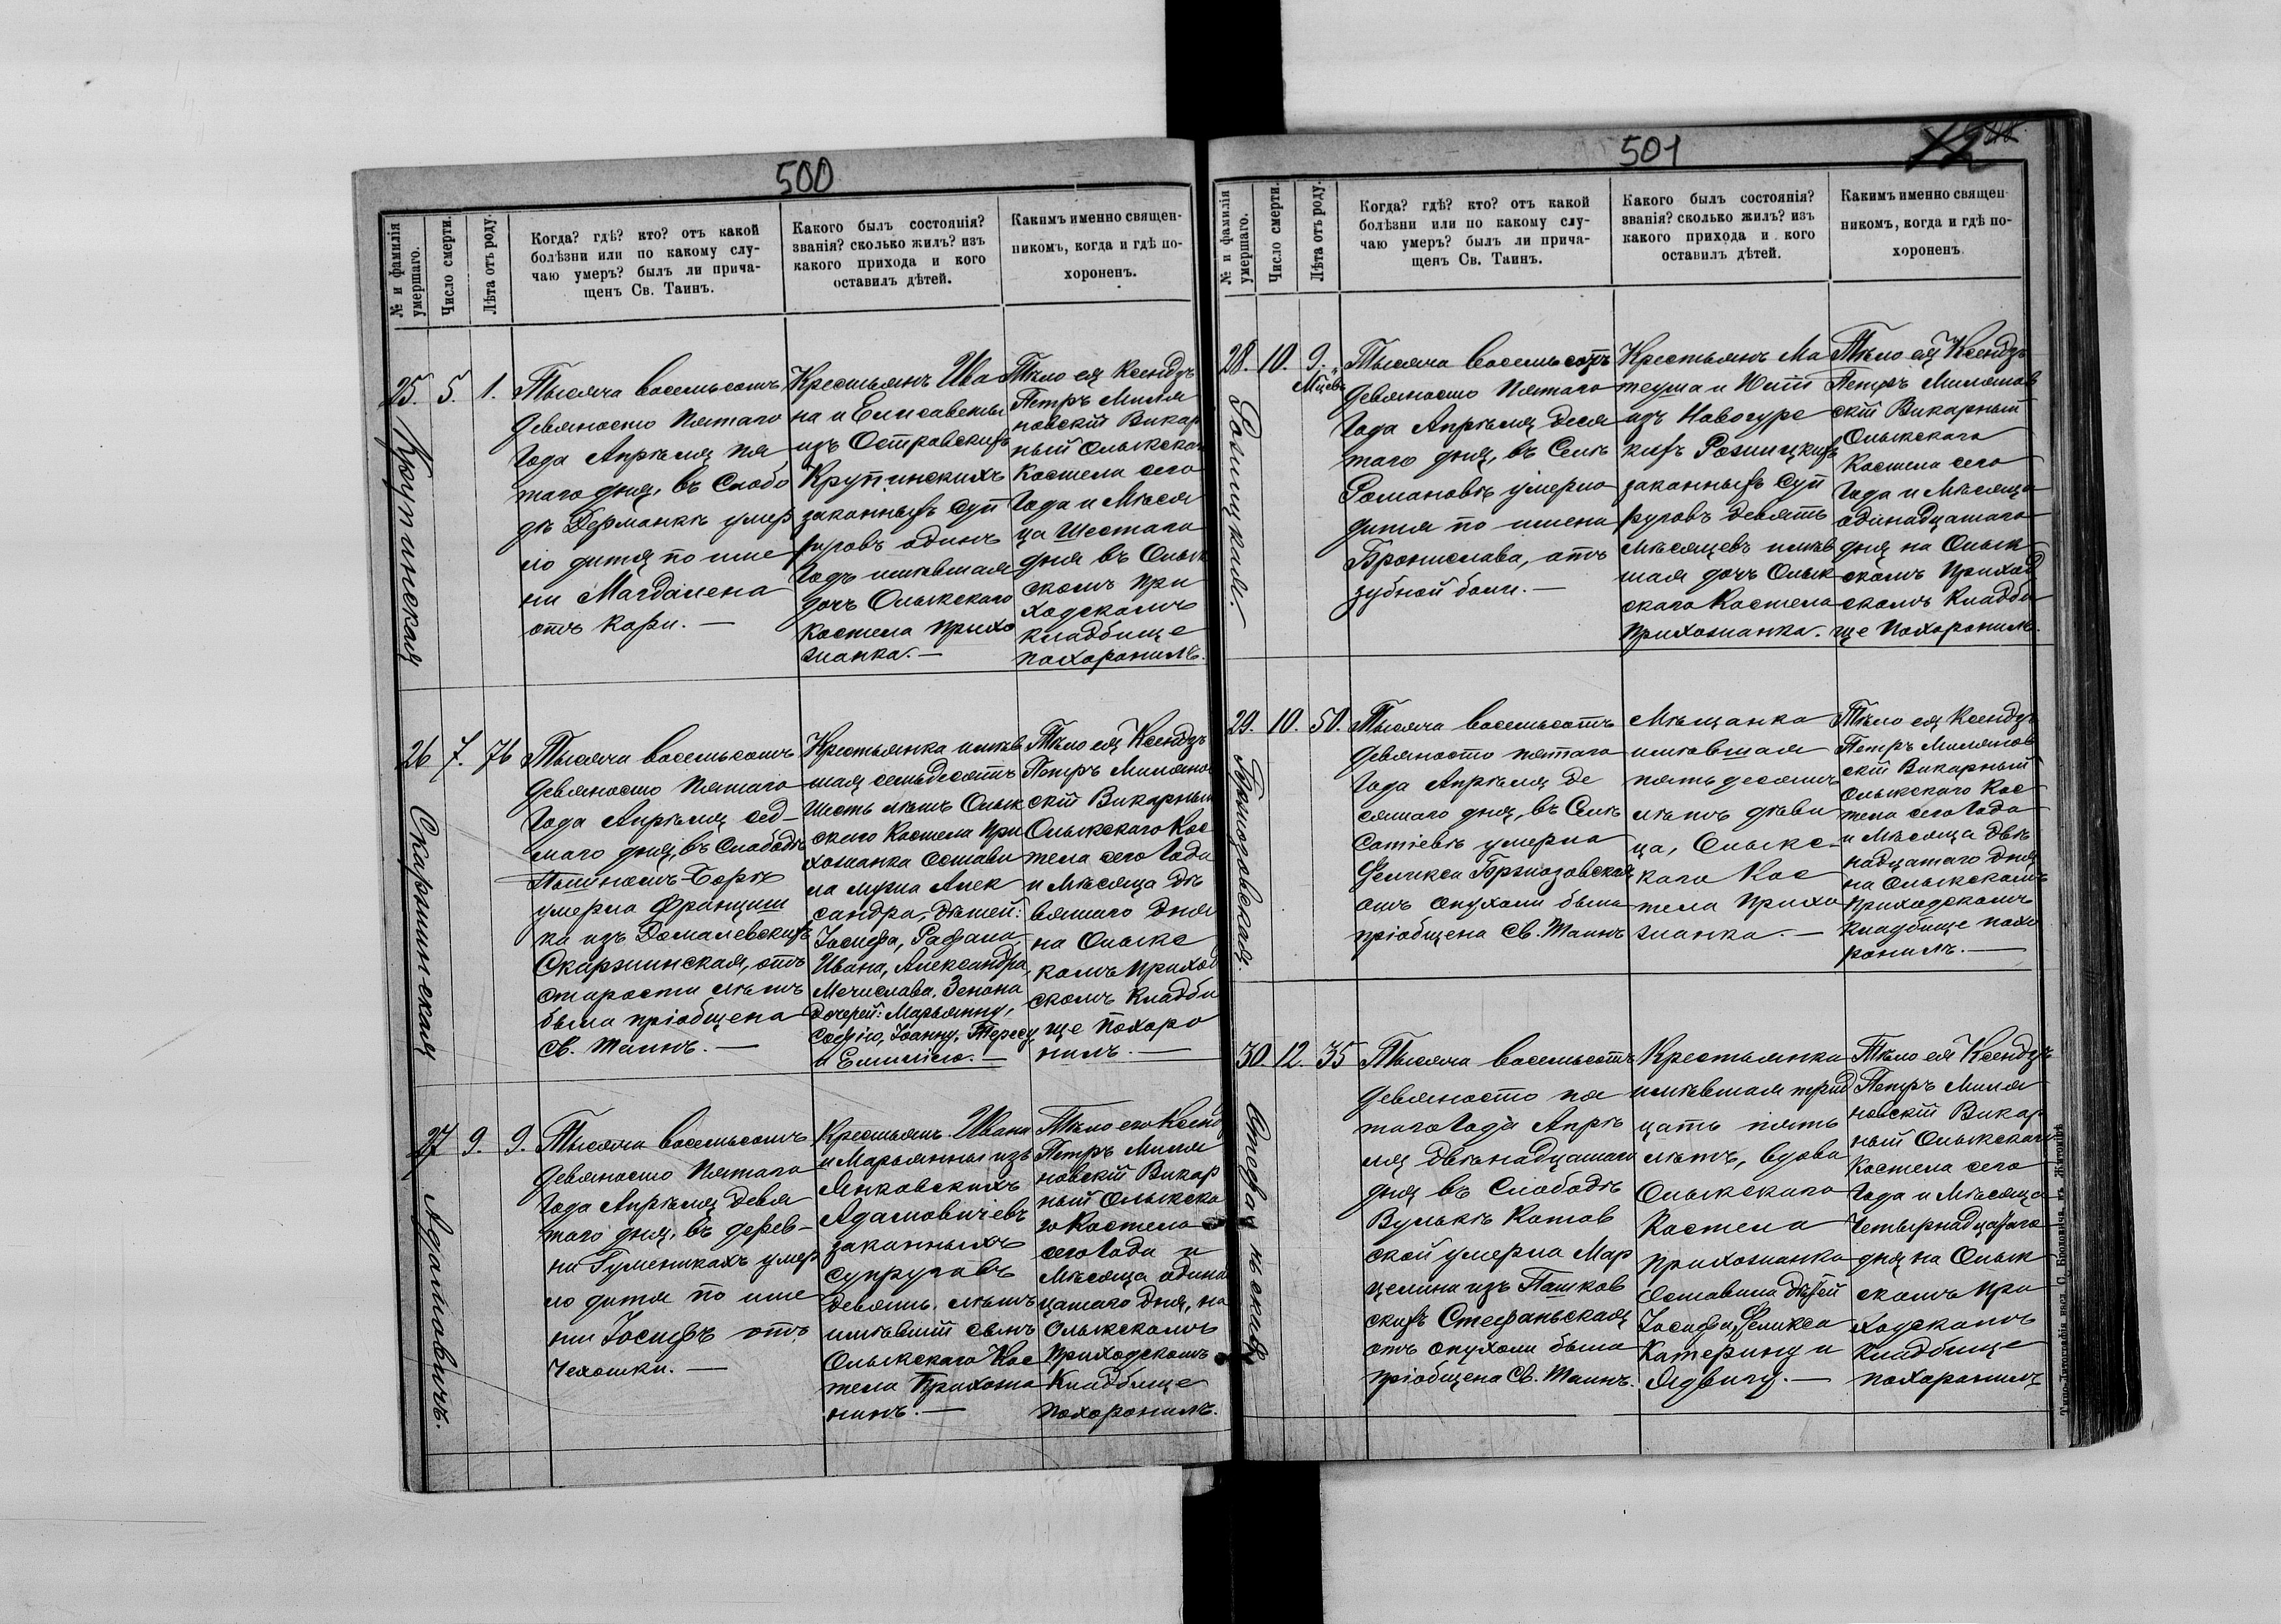 500
№ и фамилія
умершаго.
Число смерти.
Лѣта отъ роду.
Когда? гдѣ? кто? отъ какой
болѣзни или по какому слу-
чаю умеръ? былъ ли прича-
щенъ Св. Таинъ.
Какого былъ состоянія?
званія? сколько жилъ? изъ
какого прихода и кого
оставилъ дѣтей.
Какимъ именно священ-
никомъ, когда и гдѣ по-
хороненъ.
25.
Крупинская
5.
1.
Тысяча восемьсотъ
девяносто пятаго
года Апрѣля пя
таго дня, въ Слобо
дѣ Дерманкѣ умер
ло дитя по име
ни Магдалена
отъ кори. —
Крестьянъ Ива
на и Елисаветы
изъ Островскихъ
Крупинскихъ
законныхъ суп
руговъ одинъ
годъ имѣвшая
дочь Олыкского
Костела прихо
жанка. —
Тѣло ея Ксендзъ
Петръ Миля
новскій Викар
ный Олыкскаго
Костела сего
года и Мѣся
ца Шестаго
дня въ Олык
скомъ при
ходскомъ
кладбище
похоронилъ.
26
Скаржинская
7.
76
Тысяча восемьсотъ
девяносто пятаго
года Апрѣля сед-
маго дня, въ Слободѣ
умерла Франциш
ка изъ Домалевскихъ
Скаржинская, отъ
старости лѣтъ
была пріобщена
Св. Таинъ. —
Крестьянка имѣв
шая семьдесятъ
шесть лѣтъ Олык
скаго Костела при
хожанка остави
ла мужа Алек
сандра, дѣтей:
Іосифа, Рафала,
Ивана, Александра,
Мечислава, Зенона
дочерей: Марьянну,
Софію, Іоанну, Тересу
и Емилію. —
Тѣло ея Ксендзъ
Петръ Милянов
скій Викарный
Олыкскаго Кос
тела сего года
и Мѣсяца де
вятаго дня
на Олыкс
комъ приход
скомъ кладби
ще похоро
нилъ. —
27
Адамовичъ.
9.
9.
Тысяча восемьсотъ
девяносто пятаго
года Апрѣля девя
таго дня, въ дерев-
ни Гуменикахъ умер
ло дитя по име
ни Іосифъ отъ
чехотки. —
Крестьянъ Ивана
и Марьянны изъ
Янковскихъ
Адамовичевъ
законныхъ
супруговъ
девять лѣтъ
имѣвшій сынъ
Олыкскаго Кос
тела прихожа
нинъ. —
Тѣло его Ксендзъ
Петръ Миля
новскій Викар
ный Олыкска
го Костела
сего года и
Мѣсяца одинад
цатаго дня, на
Олыкскомъ
приходскомъ
кладбище
похоронилъ.
501
№ и фамилія
умершаго.
Число смерти.
Лѣта отъ роду.
Когда? гдѣ? кто? отъ какой
болѣзни или по какому слу-
чаю умеръ? былъ ли прича-
щенъ Св. Таинъ.
Какого былъ состоянія?
званія? сколько жилъ? изъ
какого прихода и кого
оставилъ дѣтей.
Какимъ именно священ-
никомъ, когда и гдѣ по-
хороненъ.
28.
10.
9.
Мцевъ
Тысяча восемьсотъ
девяносто пятаго
года Апрѣля деся
таго дня, въ Селѣ
Романовѣ умерло
дитя по имени
Бронислава, отъ
зубной боли. —
Крестьянъ Ма
теуша и
изъ Новогурс
кихъ
законныхъ суп
руговъ девять
мѣсяцевъ имѣв
шая дочь Олык
скаго Костела
прихожанка.
Тѣло ея Ксендзъ
Петръ Милянов
скій Викарный
Олыкскаго
Костела сего
года и Мѣсяца
одинадцатаго
дня на Олык
скомъ приход
скомъ кладби
ще похоронилъ.
29.
10.
50.
Тысяча восемьсотъ
девяносто пятаго
года Апрѣля де
сятаго дня, въ Селѣ
умерла
отъ опухоли была
пріобщена Св. Таинъ
Мѣщанка
имѣвшая
пятьдесятъ
лѣтъ дѣви
ца, Олыкс-
каго Кос
тела прихо
жанка. —
Тѣло ея Ксендзъ
Петръ Милянов
скій Викарный
Олыкскаго Кос
тела сего года
и Мѣсяца двѣ
надцатаго дня
на Олыкскомъ
приходскомъ
кладбище похо
ронилъ. —
30.
12.
35
Тысяча восемьсотъ
девяносто пя
таго года Апрѣ
ля двѣнадцатаго
дня въ Слободѣ
Вулькѣ Котов
ской умерла Мар
целина изъ Пашков
скихъ Стефаньская
отъ опухоли была
пріобщена Св. Таинъ.
Крестьянка
имѣвшая трид
цать пять
лѣтъ, вдова
Олыкскаго
Костела
прихожанка
оставила дѣтей
Іосифа, Феликса
Катерину и
Ядвигу. —
Тѣло ея Ксендзъ
Петръ Миля
новскій Викар
ный Олыкскаго
Костела сего
года и Мѣсяца
четырнадцатаго
дня на Олык
скомъ при
ходскомъ
кладбище
похоронилъ